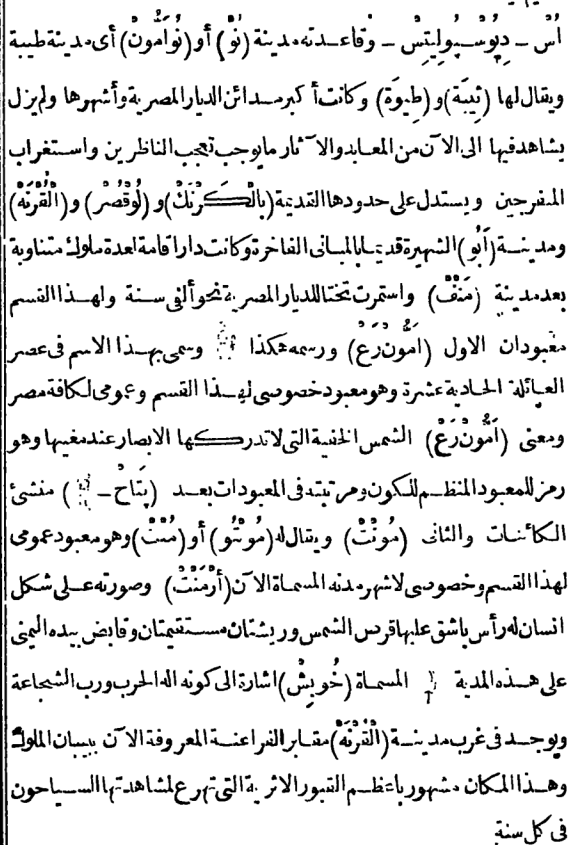 أُس – دِيُوسْبُولِيتِسْ – وقاعدته مدينة (نُو) أو (نُوأَمُونْ) أى مدينة طيبة
ويقال لها (ثِيبَة) و (طيوَة) وكانت أكبر مدائن الديار المصرية وأشهرها ولم يزل
يشاهد فيها الى الآن من المعابد والآثار مايوجب تعجب الناظرين واستغراب
المتفرجين ويستدل على حدودها القديمة (بالكَرْنَكْ) و (لُوقْصُر) و (الْقُرْنَهْ)
ومدينة (أَبُو) الشهيرة قديما بالمبانى الفاخرة وكانت دارا قامة لعدة ملوك متناوبة
بعد مدينة (مَنْفْ) واستمرت تختا للديار المصرية نحو ألفى سنة ولهذا القسم
معْبودان الاول (امُونْ رَعْ) ورسمه هكذا وسمى بهذا الاسم فى عصر
العائلة الحادية عشرة وهو معبود خصوصى لهذا القسم وعمومى لكافة مصر
ومعنى (أَمُّونْ رَعْ) الشمس الخفية التى لاتدركها الابصار عند مغيبها وهو
رمز للمعبود المنظم للكون ومرتبته فى المعبودات بعد (پتَاحْ – ) منشئ
الكائنات والثانى (مُونْتْ) ويقال له (مُونْتُو) أو (مُنْتْ) وهو معبود عمومى
لهذا القسم وخصوصى لاشهر مدنه المسماة الآن (أَرْمَنْتْ) وصورته على شكل
انسان له رأس باشق عليها قرص الشمس وريشتان مستقيمتان وقابض بيده اليمنى
على هذه المدية المسماة (خُوپِشْ) اشارة الى كونه اله الحرب ورب الشجاعة
ويوجد فى غرب مدينة (الْقُرْنَهْ) مقابر الفراعنة المعروفة الآن ببيبان الملوك
وهذا المكان مشهور باعظم القبور الاثرية التى تهرع لمشاهدتها السياحون
فى كل سنة